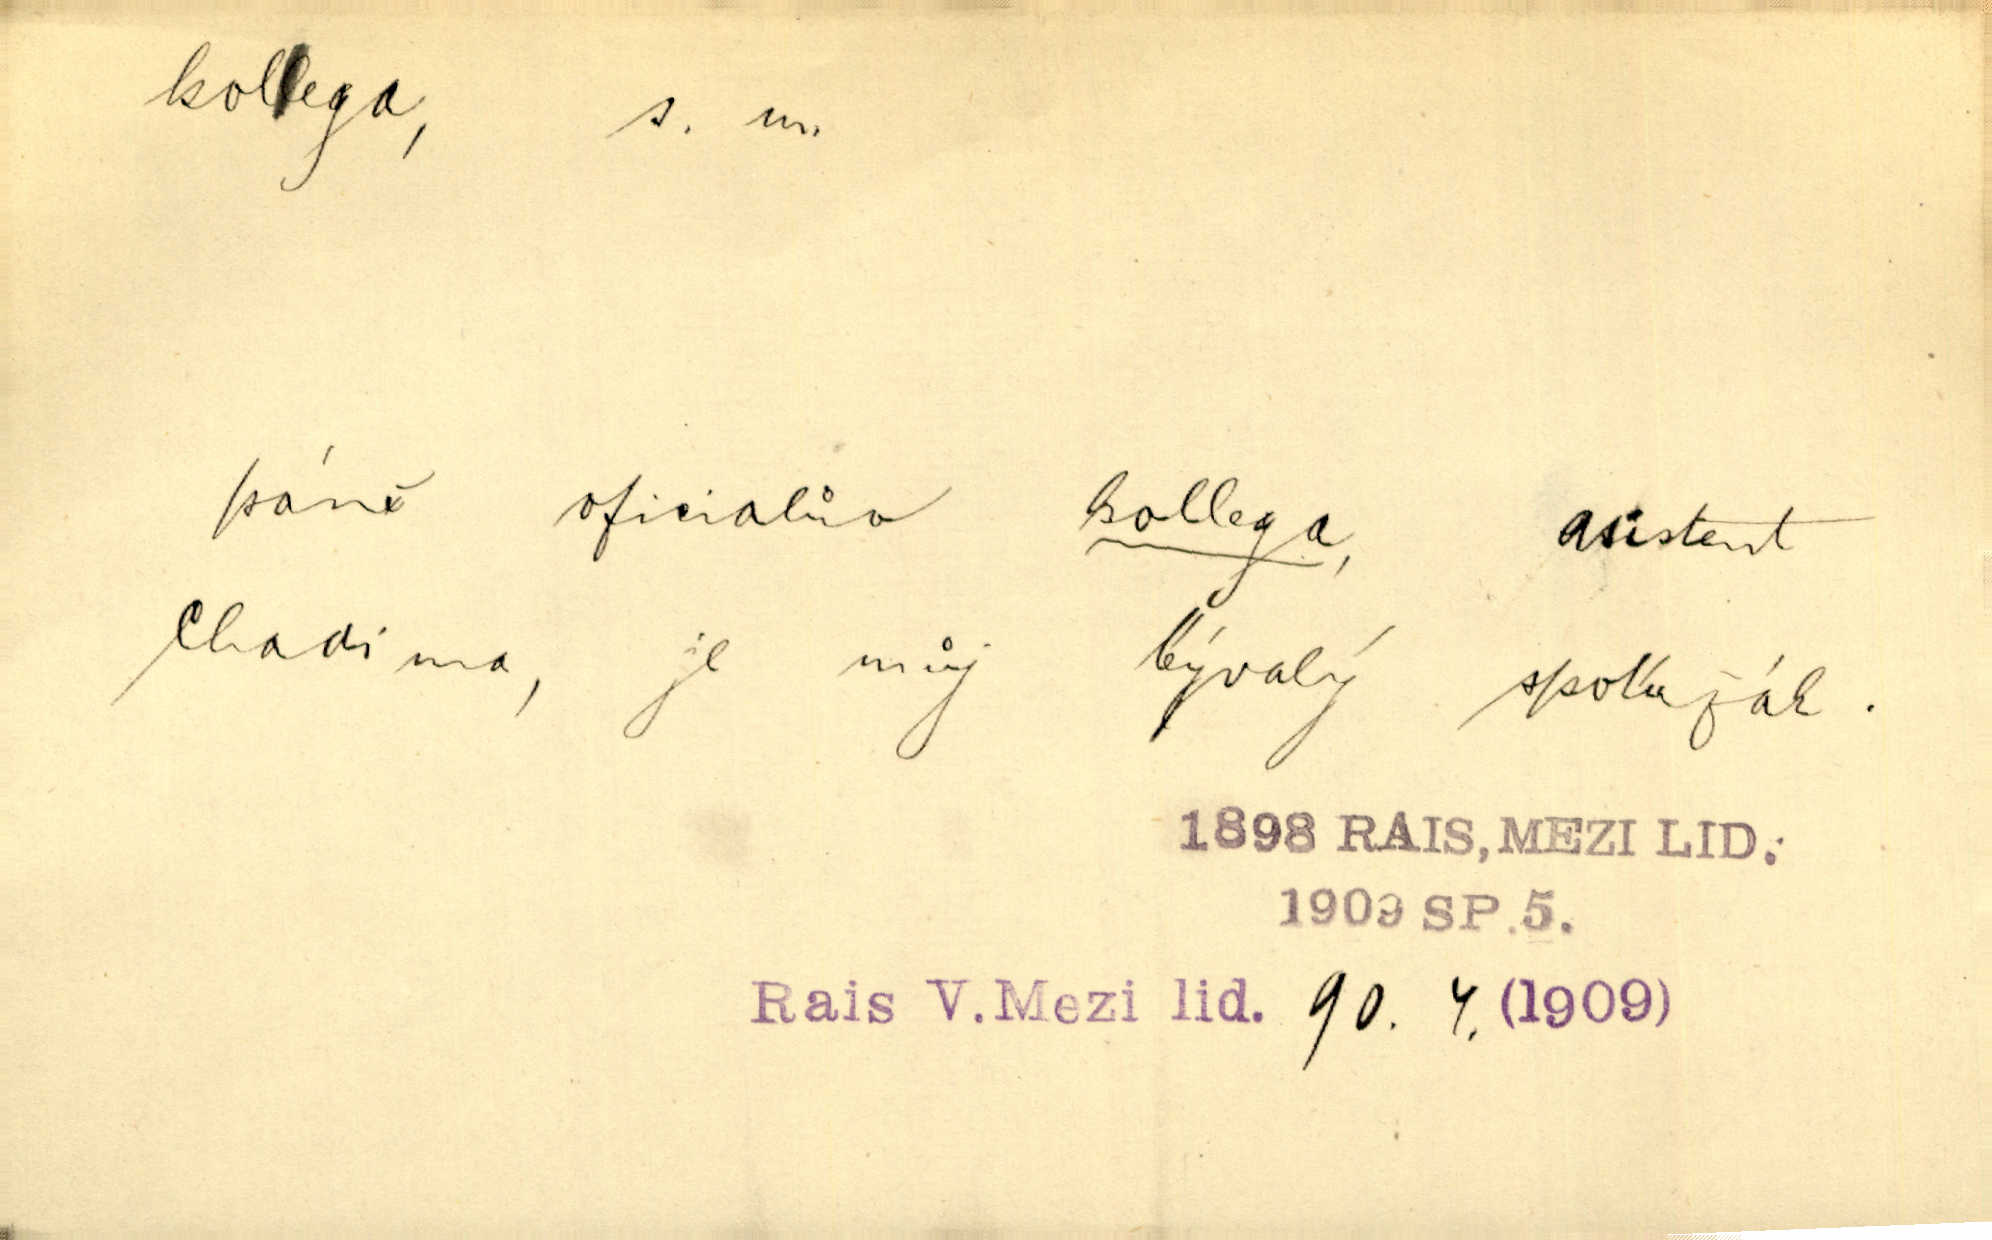 kollega, s. m.
páně oficialův kollega, asistent
Chadima, je můj bývalý spolužák.
1898 RAIS, MEZI LID.
1909 SP. 5.
Rais V. Mezi lid. 90. 4. (1909)